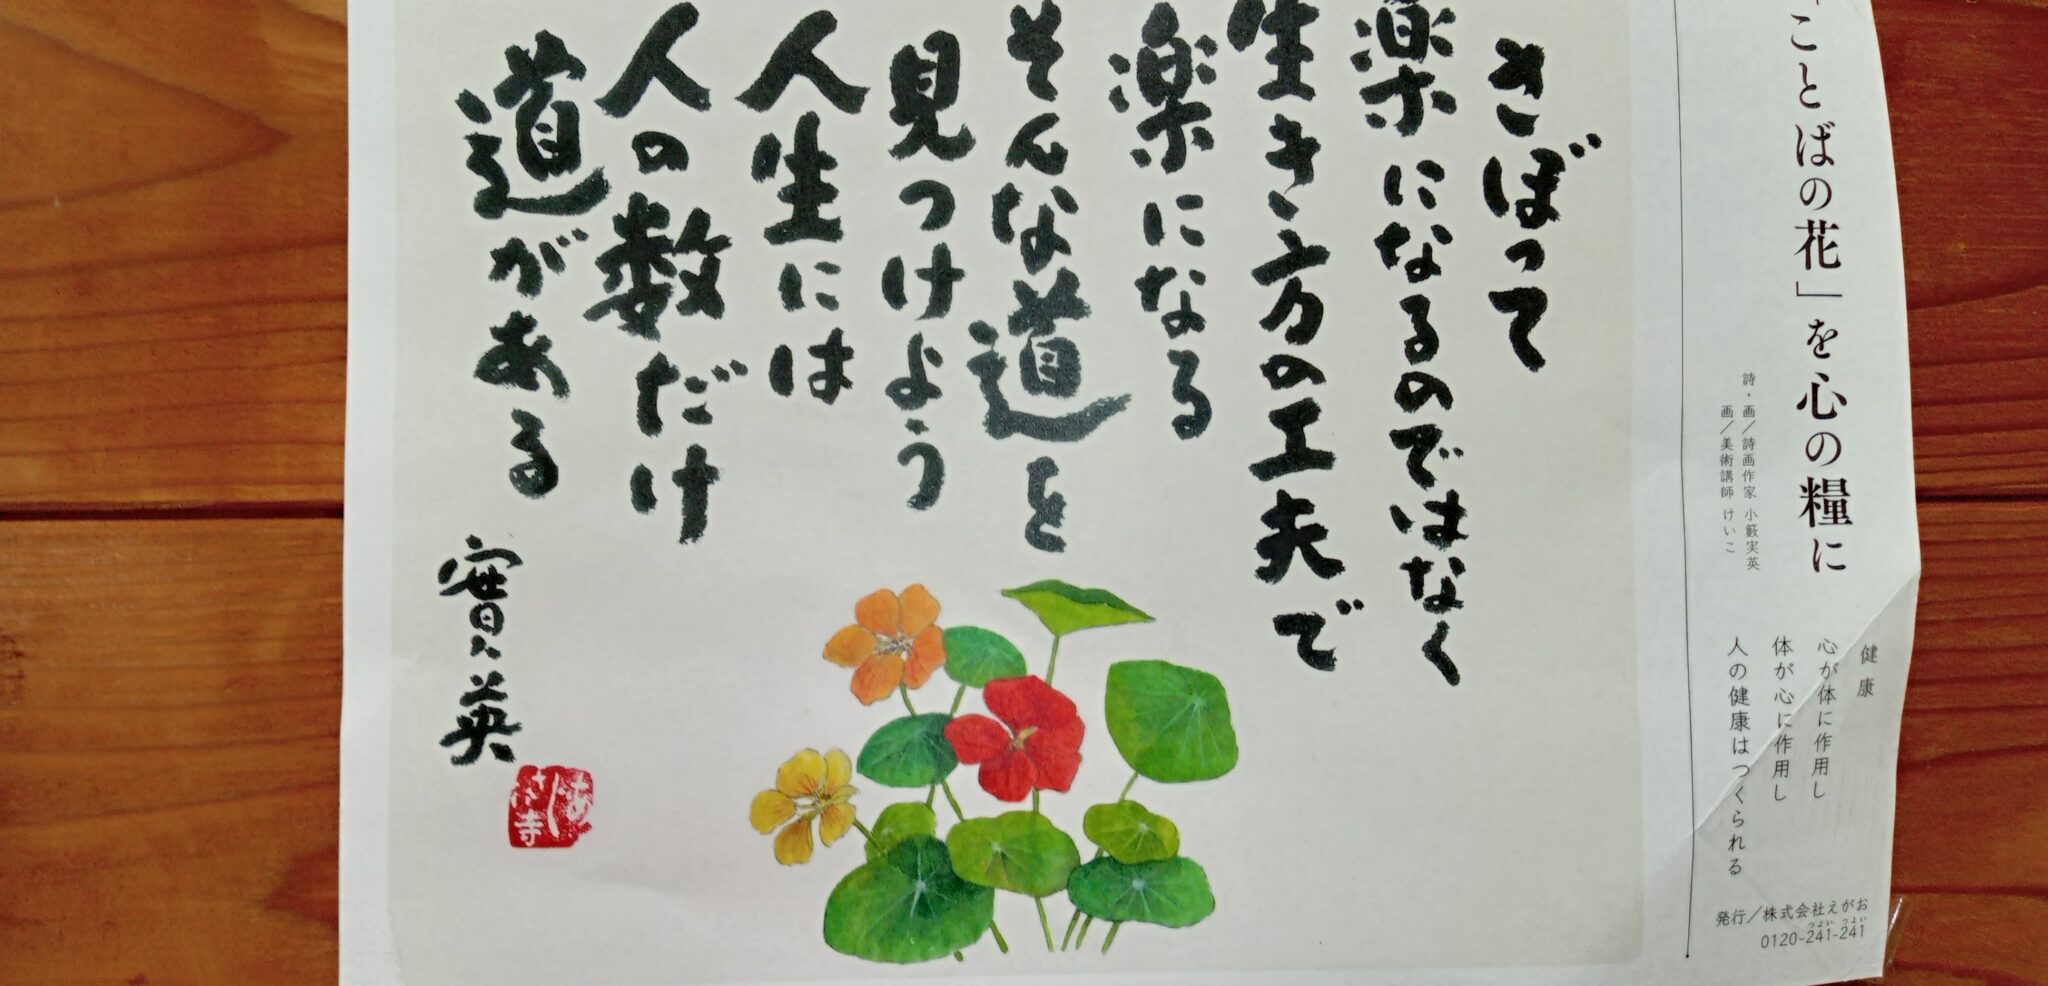 ことばの花」を心の糧に
詩・画／詩画作家 小籔実英
画／美術講師 けいこ
健康
心が体に作用し
体が心に作用し
人の健康はつくられる
発行／株式会社えがお
つよい つよい
0120-241-241
さぼって
楽になるのではなく
生き方の工夫で
楽になる
そんな道を
見つけよう
人生には
人の数だけ
道がある
實英